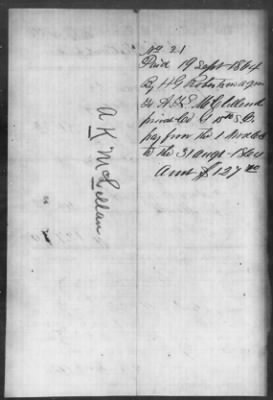 No 21
Paid 19 Sept 1864
By H G Robertson agm
to A K McLellan
private Co G 15th S.C.
pay from the 1
to the 31 augt 1864
Amt $ 127 00
A K McLellan